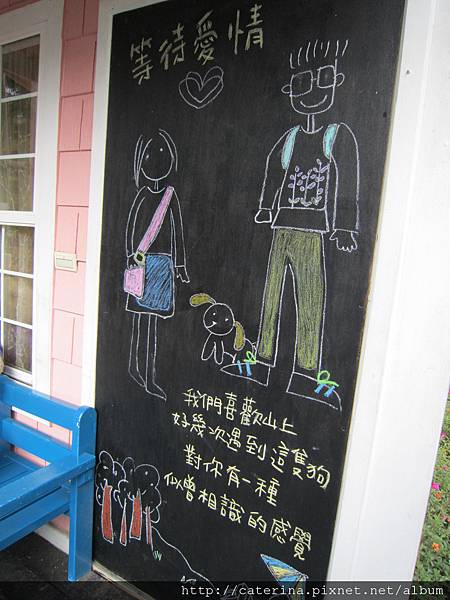 等待愛情
我們喜歡山上
好幾次遇到這隻狗
對你有一種
似曾相識的感覺
http://caterina.pixnet.net/album